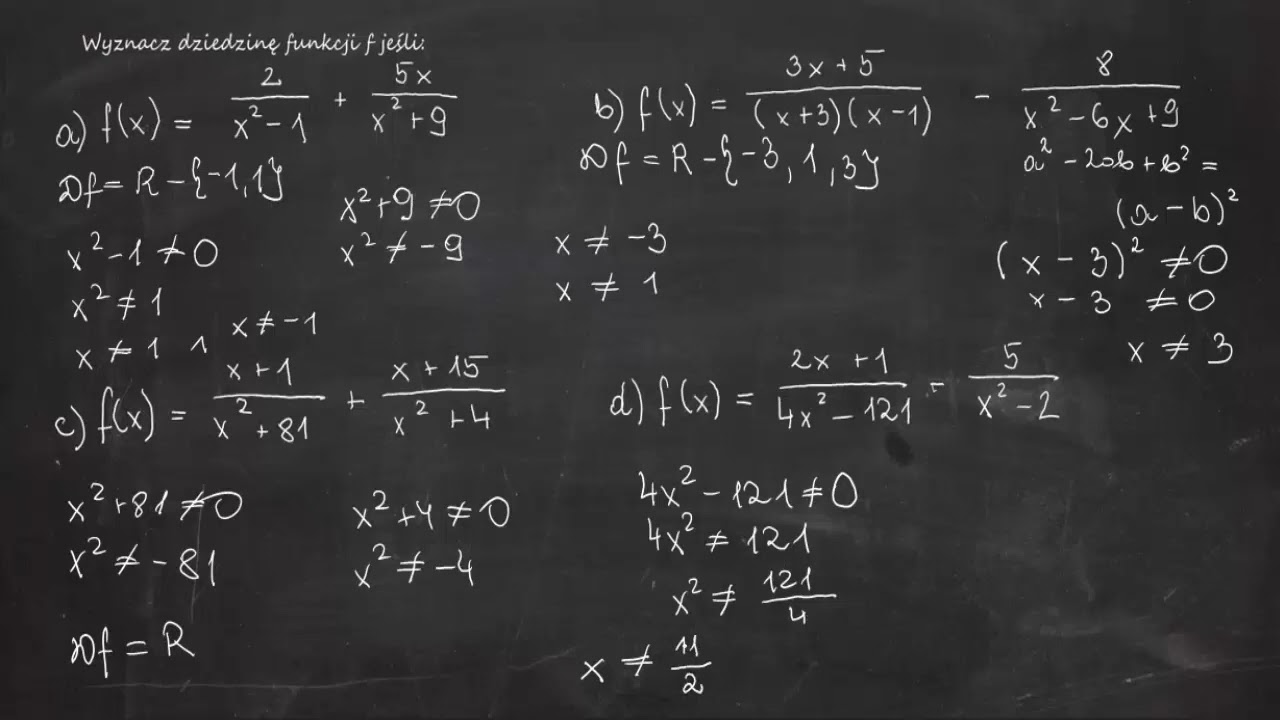 Wyznacz dziedzinę funkcji f jeśli:
a) f(x) = 2/(x² - 1) + 5x/(x² + 9)
Df = R - {-1, 1}
x² + 9 ≠ 0
x² ≠ -9
x² - 1 ≠ 0
x² ≠ 1
x ≠ 1 ∧ x ≠ -1
b) f(x) = (3x + 5)/((x+3)(x-1)) - 8/(x² - 6x + 9)
Df = R - {-3, 1, 3}
x ≠ -3
x ≠ 1
a² - 2ab + b² =
(a - b)²
(x - 3)² ≠ 0
x - 3 ≠ 0
x ≠ 3
c) f(x) = (x+1)/(x² + 81) + (x + 15)/(x² + 4)
x² + 81 ≠ 0
x² ≠ -81
x² + 4 ≠ 0
x² ≠ -4
Df = R
d) f(x) = (2x + 1)/(4x² - 121) - 5/(x² - 2)
4x² - 121 ≠ 0
4x² ≠ 121
x² ≠ 121/4
x ≠ 11/2